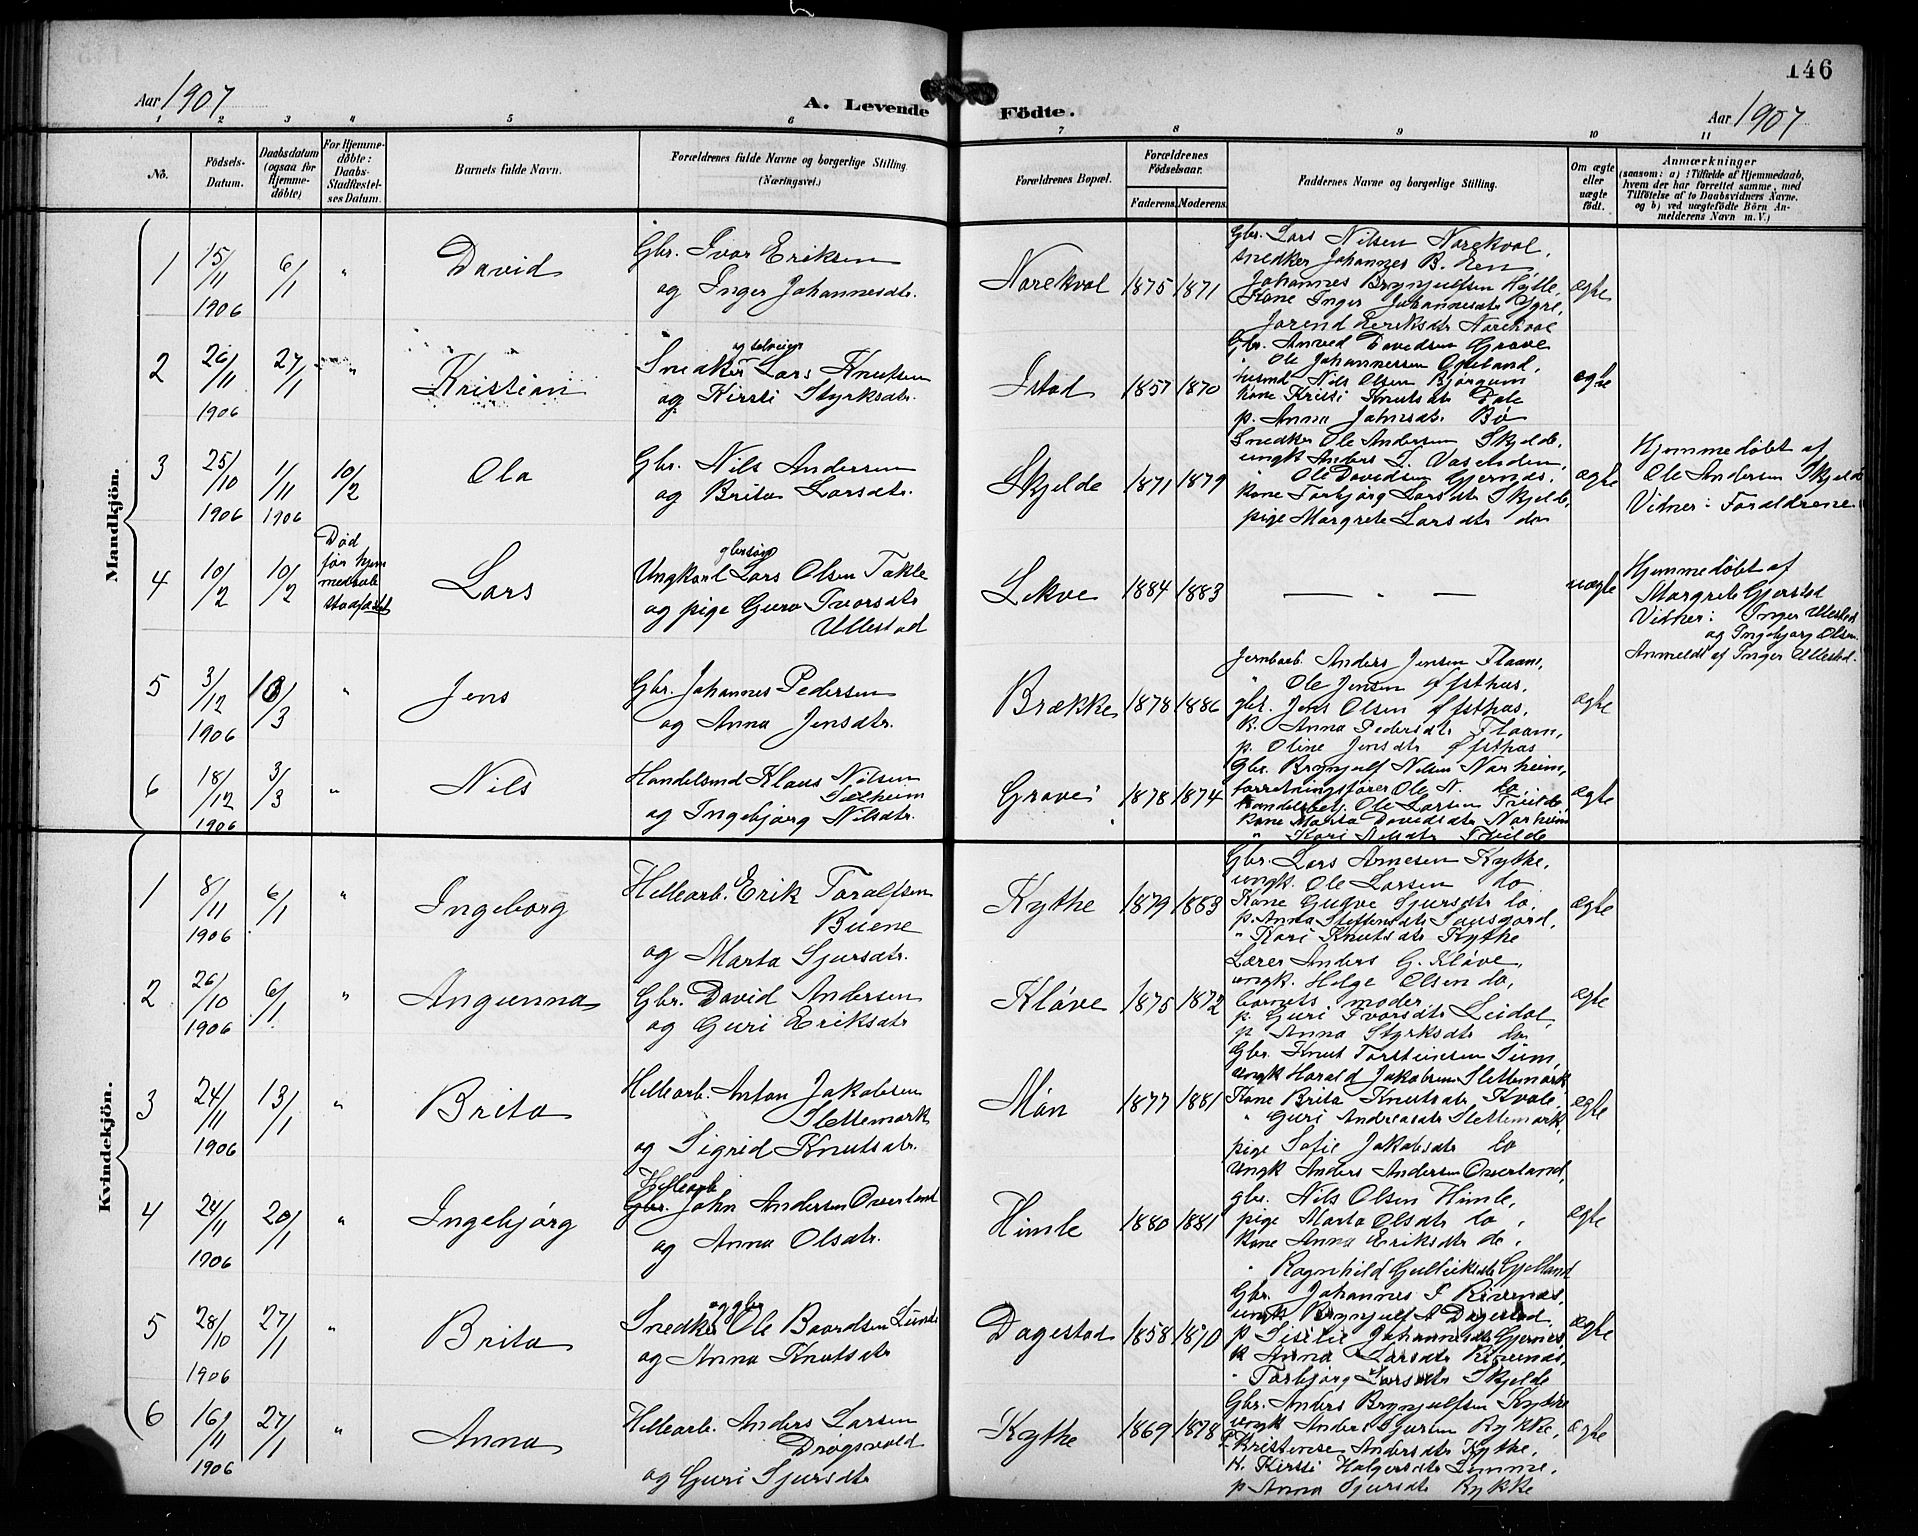 146
Aar 1907
A. Levende Födte.
Aar 1907
1 2 3 4 5 6 7 8 9 10 11
No.
Födsels-Datum.
Daabsdatum (ogsaa for Hjemme-döbte)
For Hjemme-döbte: Daabs-Stadfæstel-ses Datum.
Barnets fulde Navn.
Forældrenes fulde Navne og borgerlige Stilling. (Næringsvei.)
Forældrenes Bopæl.
Forældrenes Födselsaar.
Faderens. Moderens.
Faddernes Navne og borgerlige Stilling.
Om ægte eller uægte födt.
Anmærkninger
(saasom: a) i Tilfælde af Hjemmedaab,
hvem der har forrettet samme, med
Tilföielse af to Daabsvidners Navne.
og b) ved uægtefödte Börn An-
melderens Navn m. V.)
Mandkjön.
1 15/11 1906 6/1 " David
Gbr. Ivar Eriksen
og Inger Johannesdtr.
Norekval 1875 1871
Gbr. Lars Nilsen Norekval,
Snedker Johannes B. Een,
Johannes Brynjulfsen Hylle,
Kone Inger Johannesdtr Ygre,
Jorend Eriksdtr Norekval
ægte
2 26/11 1906 27/1 " Kristian
og selveier
Snedker Lars Knutsen
og Kirsti Styrksdtr.
Istad 1857 1870
Gbr. Anved Davidsen Grove
" Ole Johannessen Opeland,
husmd Nils Olsen Bjørgum
kone Kristi Knutsdtr Dale
p. Anna Johnsdtr Bø
ægte
3 25/10 1906 1/11 1906 10/2 Ola
Gbr. Nils Andersen
og Brita Larsdtr.
Skjelde 1871 1879
Snedker Ole Andersen Skjelde,
ungk Anders L. Vasenden,
" Ole Davidsen Gjernes,
kone Torbjørg Larsdtr Skjelde,
pige Margrete Larsdtr do
ægte
Hjemmedøbt af
Ole Andersen Skjelde
Vidner: Forældrene
4 10/2 10/2
Død
før hjem
medaab
stadfæstet
Lars
gbrsøn
Ungkarl Lars Olsen Takle
og pige Guro Ivarsdtr
Ullestad
Lekve 1884 1883
— " —
uægte
Hjemmedøbt af
Margrete Gjerstad
Vidner: Inger Ullestad
og Ingebjørg Olsen.
Anmeldt af Inger Ullestad.
5 3/12 1906 10/3 " Jens
Gbr. Johannes Pedersen
og Anna Jensdtr.
Brække 1878 1886
Jernbarb. Anders Jensen Flaam,
" Ole Jensen Øfsthus,
gbr. Jens Olsen Øfsthus,
k. Anna Pedersdtr Flaam,
p. Oline Jensdtr Øfsthus
ægte
6 18/12 1906 3/3 " Nils
Handelsmd Klaus Nilsen
Sælheim
og Ingebjørg Nilsdtr.
Grove 1878 1874
Gbr. Brynjulf Nilsen Norheim,
forretningsfører Ole N. do
handelsbetj. Ole Larsen Tvilde
kone Marta Davidsdtr Norheim
" Kari Nilsdtr Tvilde
ægte
Kvindekjön.
1 8/11 1906 6/1 " Ingeborg
Hellearb. Erik Toralfsen
Buene
og Marta Sjursdtr.
Kythe 1879 1883
Gbr. Lars Arnesen Kythe,
ungk. Ole Larsen do
Kone Gudve Sjursdtr do.
p. Anna Steffensdtr Sausjord,
" Kari Knutsdtr Kythe
ægte
2 26/10 1906 6/1 " Angunna
Gbr. David Andersen
og Guri Eriksdtr
Kløve 1875 1872
Lærer Anders G. Kløve,
ungk. Helge Olsen do,
barnets moder,
p. Guri Ivarsdtr Leidal,
p. Anna Styrksdtr do
ægte
3 24/11 1906 13/1 " Brita
Hellearb. Anton Jakobsen
Slettemark
og Sigrid Knutsdtr.
Møn 1877 1881
Gbr. Knut Torsteinsen Sum,
ungk Harald Jakobsen Slettemark
Kone Brita Knutsdtr Kvale
" Guri Andreasdtr Slettemark,
pige Sofie Jakobsdtr do
ægte
4 24/11 1906 20/1 " Ingebjørg
Hellearb
Gbr. John Andersen Overland
og Anna Olsdtr.
Himle 1880 1881
ungk Anders Andersen Overland,
gbr. Nils Olsen Himle,
pige Marta Olsdtr do,
kone Anna Eriksdtr do.
" Ragnhild Gulleiksdtr Gjelland
ægte
5 28/10 1906 27/1 " Brita
og gbr
Snedker Ole Baardsen Lunde
og Anna Knutsdtr
Dagestad 1858 1870
Gbr. Johannes J. Rinenæs,
ungk Brynjulf A Dagestad
p Siselie Johannesdtr Gjernes,
k Anna Larsdtr Rinenæs,
" Torbjørg Larsdtr Skjelde
ægte
6 16/11 1906 27/1 " Anna
Hellearb. Anders Larsen
Drøgsvold
og Guri Sjursdtr
Kythe 1869 1878
Gbr. Anders Brynjulfsen Kythe
ungk Anders Sjursen Rykke,
P. Kristense Andersdtr Kythe,
K. Kirsti Holgersdtr Lemme,
p Anna Sjursdtr Rykke
ægte